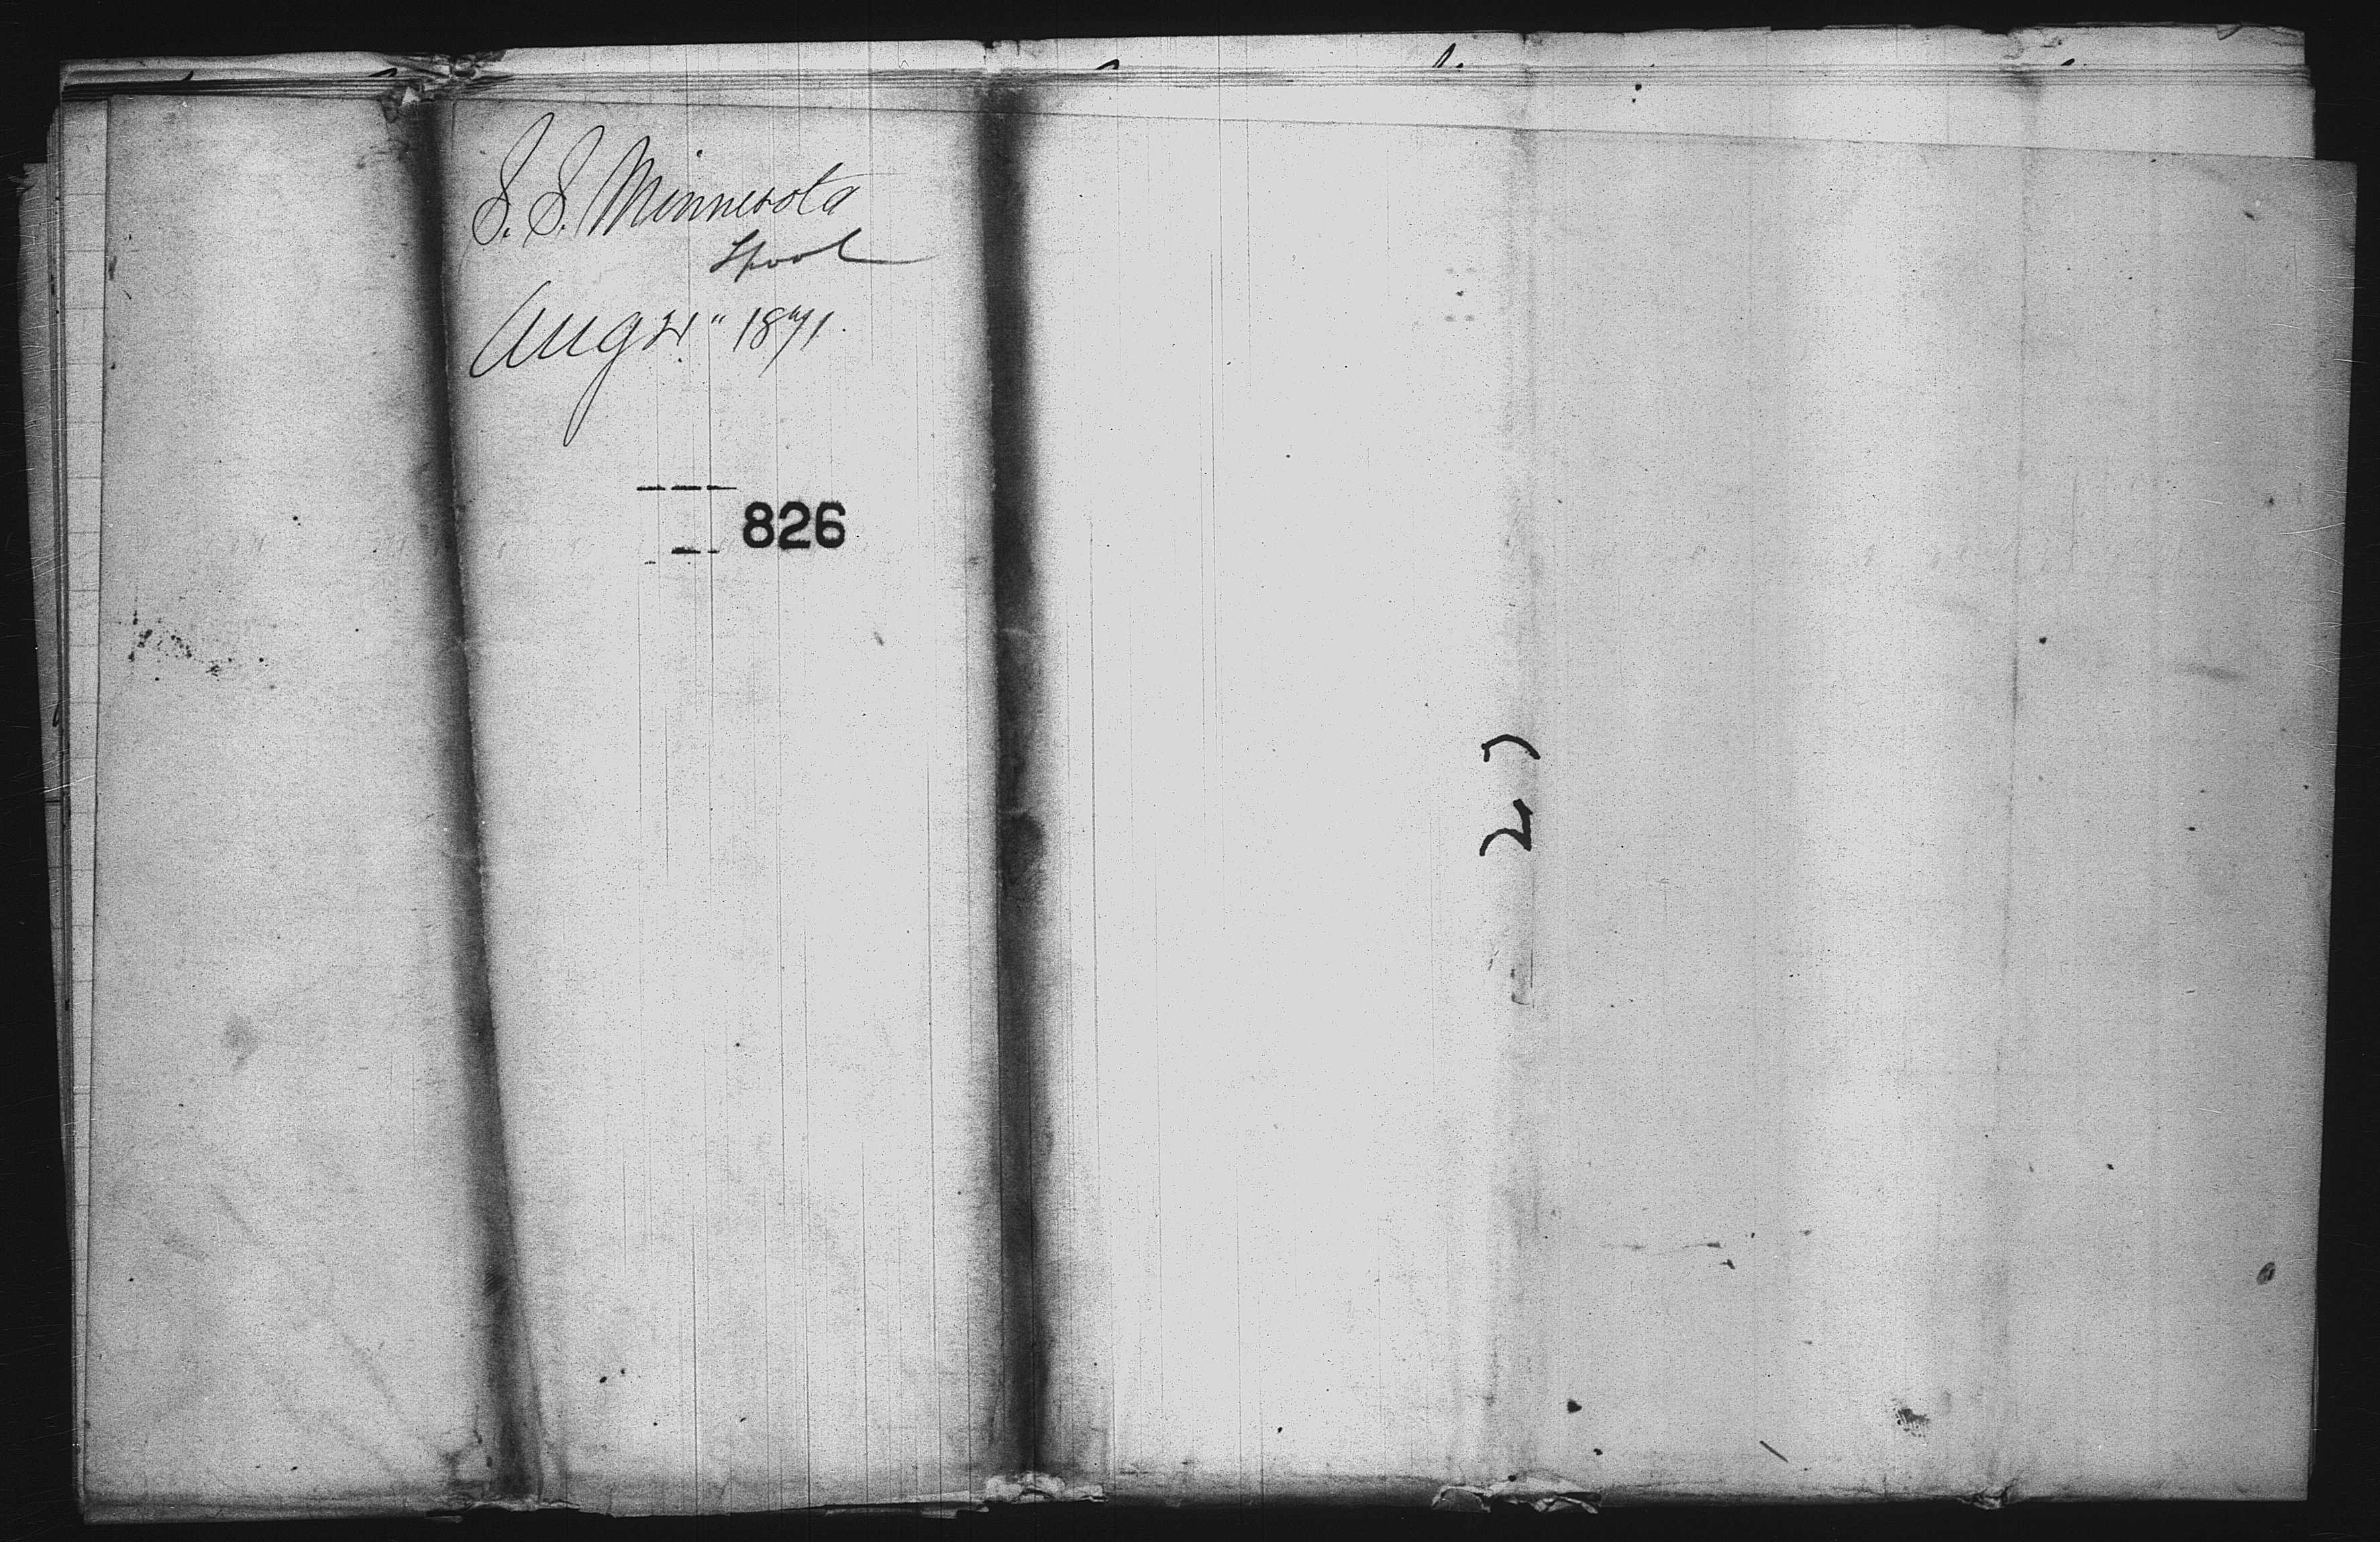 S. S. Minnesota
Lpool
Aug 21" 1871.
826